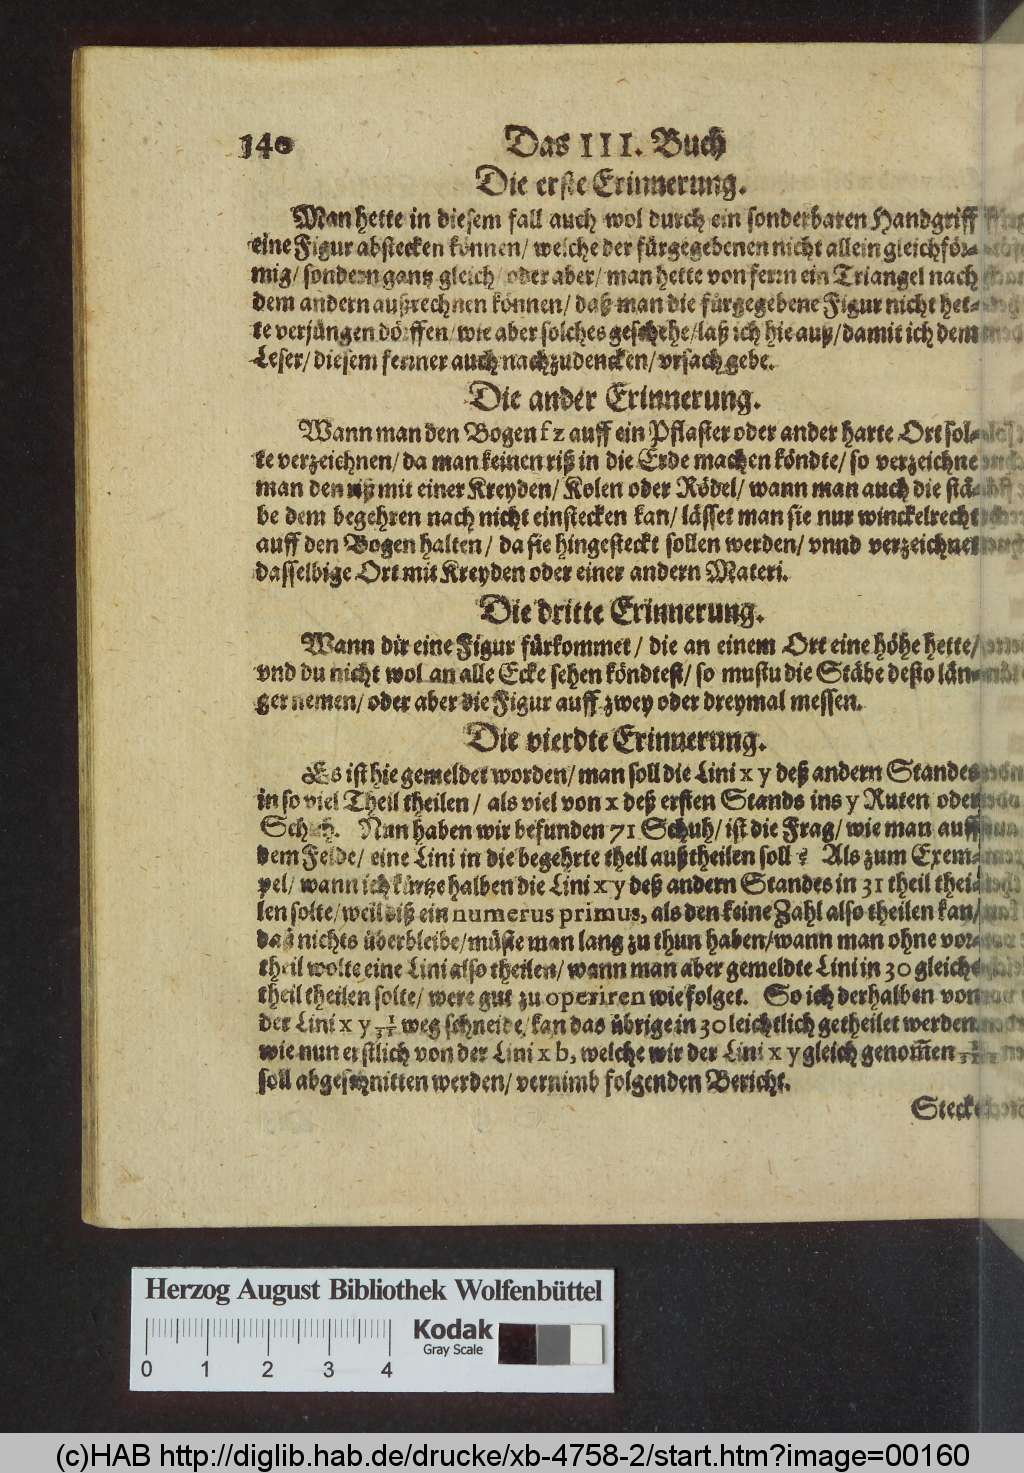 140 Das III. Buch
Die erste Erinnerung.
Man hette in diesem fall auch wol durch ein sonderbaren Handgriff
eine Figur abstecken können/ welche der fürgegebenen nicht allein gleichför-
mig/ sondern gantz gleich/ oder aber/ man hette von ferrn ein Triangel nach
dem andern außrechnen können/ daß man die fürgegebene Figur nicht het-
te verjüngen dörffen/ wie aber solches geschehe/ laß ich hie auß/ damit ich dem
Leser/ diesem ferrner auch nachzudencken/ vrsach gebe.
Die ander Erinnerung.
Wann man den Bogen f z auff ein Pflaster oder ander harte Ort sol-
te verzeichnen/ da man keinen riß in die Erde machen köndte/ so verzeichne
man den riß mit einer Kreyden/ Kolen oder Rödel/ wann man auch die stä-
be dem begehren nach nicht einstecken kan/ lässet man sie nur winckelrecht
auff den Bogen halten/ da sie hingesteckt sollen werden/ vnnd verzeichnet
dasselbige Ort mit Kreyden oder einer andern Materi.
Die dritte Erinnerung.
Wann dir eine Figur fürkommet/ die an einem Ort eine höhe hette/
vnd du nicht wol an alle Ecke sehen köndtest/ so mustu die Stäbe desto län-
ger nemen/ oder aber die Figur auff zwey oder dreymal messen.
Die vierdte Erinnerung.
Es ist hie gemeldet worden/ man soll die Lini x y deß andern Standes
in so viel Theil theilen/ als viel von x deß ersten Stands ins y Ruten oder
Schuh. Nun haben wir befunden 71 Schuh/ ist die Frag/ wie man auff
dem Felde/ eine Lini in die begehrte theil außtheilen soll? Als zum Exem-
pel/ wann ich kürtze halben die Lini x y deß andern Standes in 31 theil thei-
len solte/ weil diß ein numerus primus, als den keine Zahl also theilen kan/
daß nichts überbleibe/ müste man lang zu thun haben/ wann man ohne vor-
theil wolte eine Lini also theilen/ wann man aber gemeldte Lini in 30 gleiche
theil theilen solte/ were gut zu operiren wie folget. So ich derhalben von
der Lini x y 1/31 weg schneide/ kan das übrige in 30 leichtlich getheilet werden.
wie nun erstlich von der Lini x b, welche wir der Lini x y gleich genom̃en 1/31
soll abgeschnitten werden/ vernimb folgenden Bericht.
Steck
Herzog August Bibliothek Wolfenbüttel
0 1 2 3 4
Kodak
Gray Scale
(c)HAB http://diglib.hab.de/drucke/xb-4758-2/start.htm?image=00160